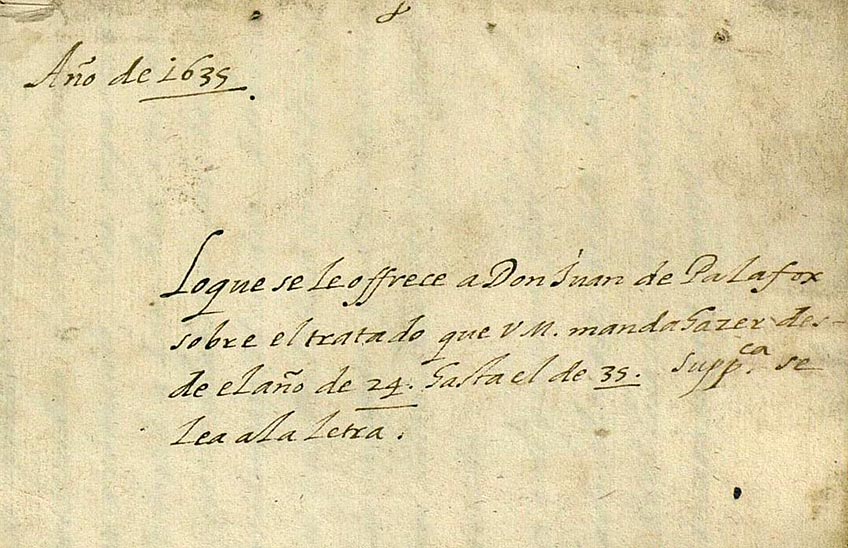 Año de 1635.
Loque se le offrece a Don Juan de Palafox
sobre el tratado que V M. manda hazer des-
de el año de 24. hasta el de 35. Suppca. se
lea a la letra.